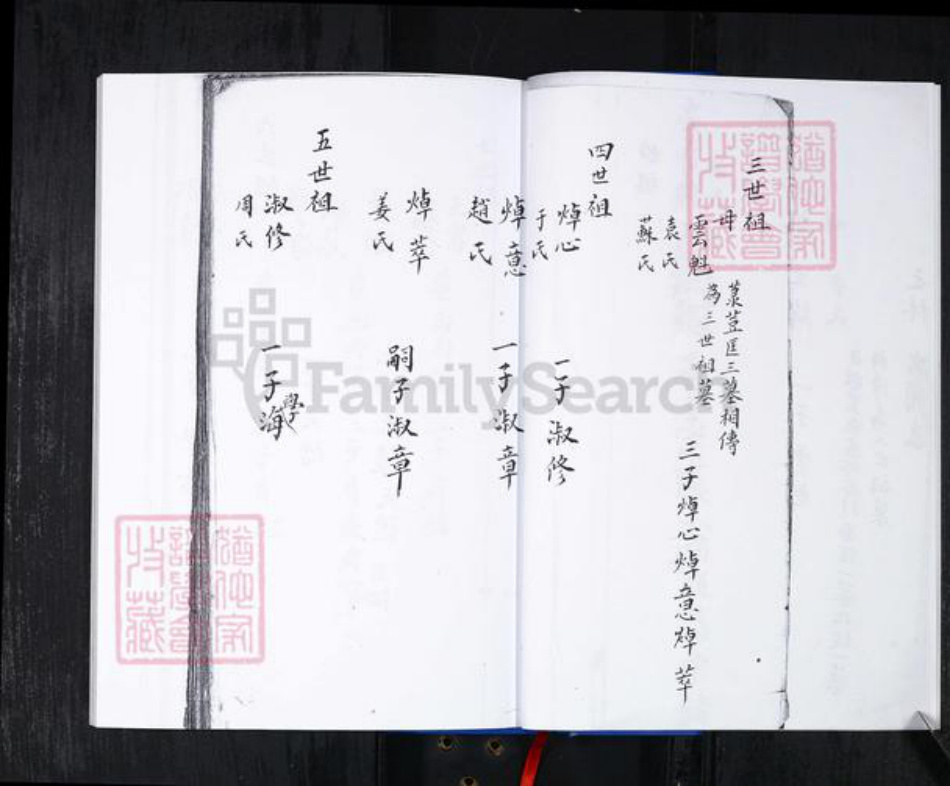 三世祖
母
雲魁
袁氏
蘇氏
墓荳匡三墓相傳
為三世祖墓
三子焯心焯意焯萃
四世祖
焯心
于氏
一子淑修
焯意
趙氏
一子淑章
焯萃
姜氏
嗣子淑章
五世祖
淑修
周氏
一子學海
FamilySearch
猶他家
譜學會
收藏
猶他家
譜學會
收藏